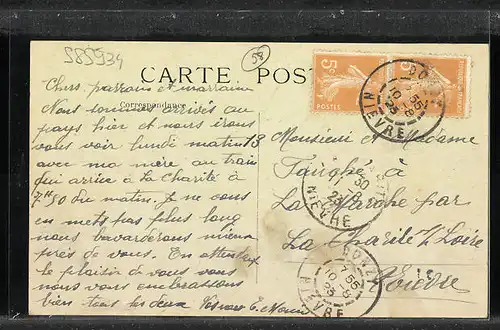 585934
58
CARTE POS
Correspondance
5c
POSTES
Chers parrain et marraine
Nous sommes arrivés au
pays hier et nous irons
vous voir lundi matin 13
avec ma mère au train
qui arrive à La Charité à
7H30 du matin. Je ne vous
en mets pas plus long
nous bavarderons mieux
près de vous. En attendant
le plaisir de vous voir
nous vous embrassons
bien tous les deux
Monsieur et Madame
à
La Marche par
La Charité s/ Loire
Nièvre
DONZY
NIEVRE